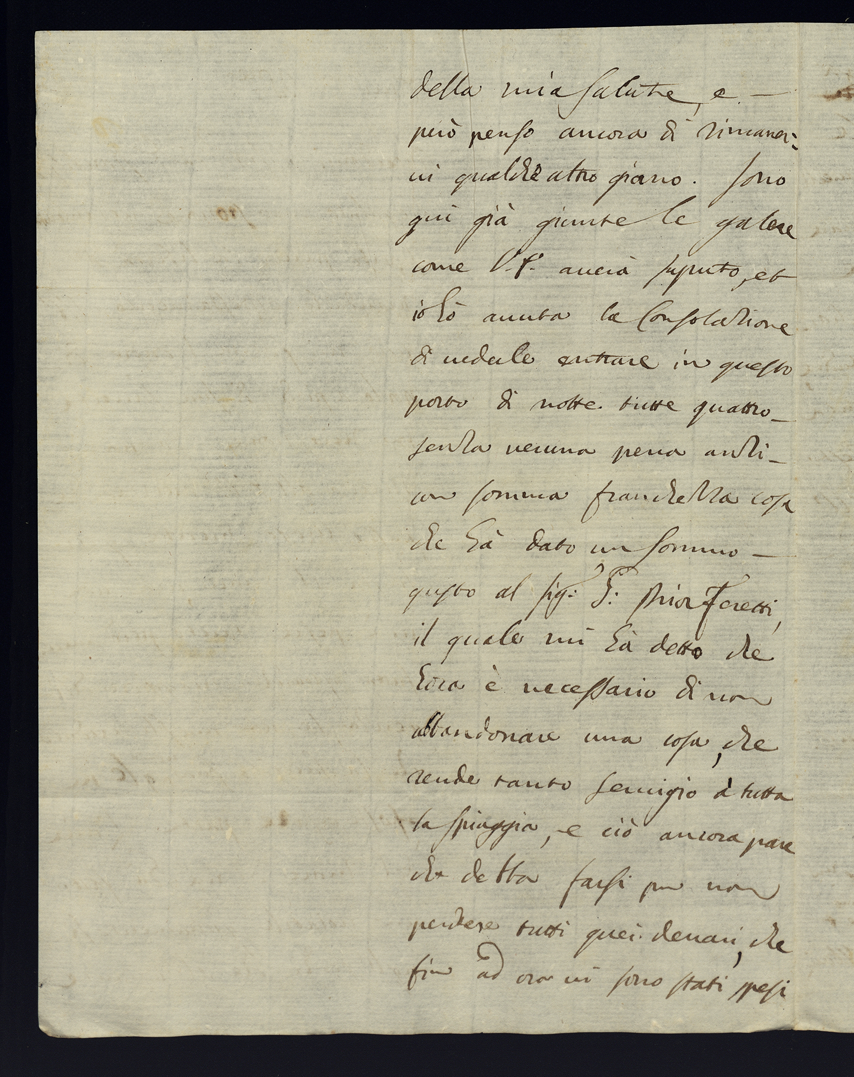 della mia salute, e —
però penso ancora di rimaner:
ui qualche altro giorno. Sono
qui già giunte le galere
come V.S. auerà saputo, et
io hò auuta la Consolazione
di uederle entrare in questo
porto di notte tutte quattro —
senza ueruna pena anzi —
con somma franchezza cosa
che hà dato un sommo —
gusto al Sig: P: Prior Feretti,
il quale mi hà detto che
hora è necessario di non
abbandonare una cosa, che
rende tanto seruigio à tutta
la spiaggia, e ciò ancora pare
che debba farsi per non
perdere tutti quei denari, che
fin ad ora ui sono stati spesi